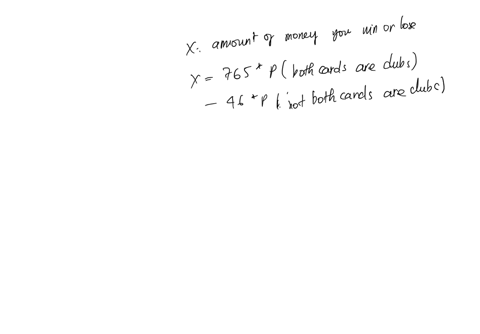 X: amount of money you win or lose
X = 765 * P ( both cards are clubs )
- 46 * P ( not both cards are clubs )